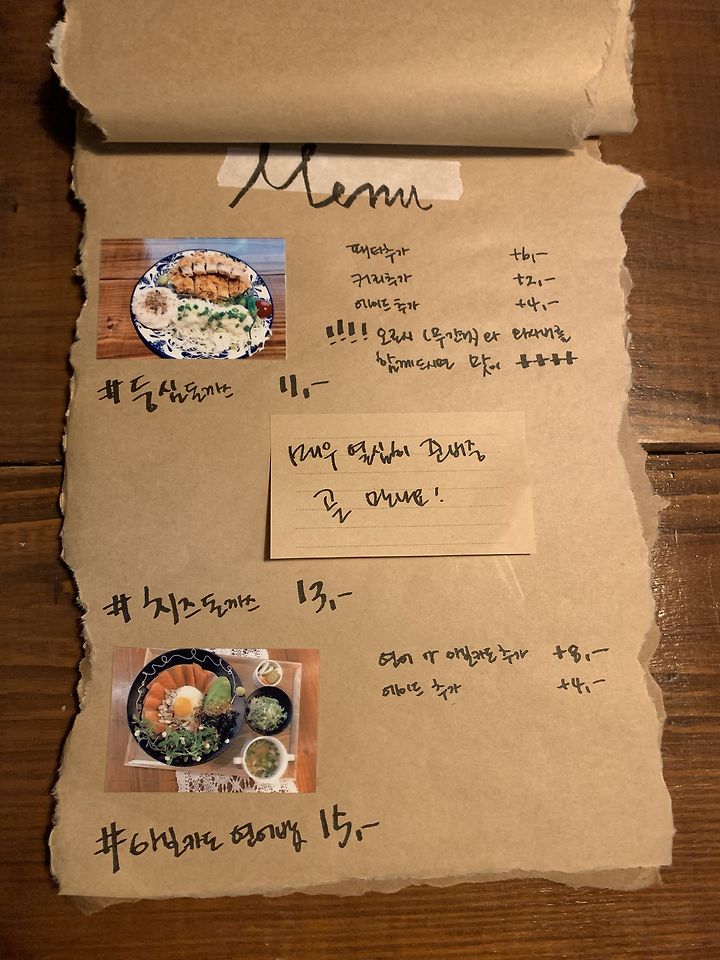 Menu
+6,-
커리추가 +2,-
에이드추가 +4,-
!!!! 오로시 (무간것)와 와사비를
함께드시면 맛이 ++++
#등심돈까스 11,-
매우 열심히 준비중
곧 만나요!
#치즈돈까스 13,-
연어 or 아보카도추가 +8,-
에이드 추가 +4,-
#아보카도 연어밥 15,-